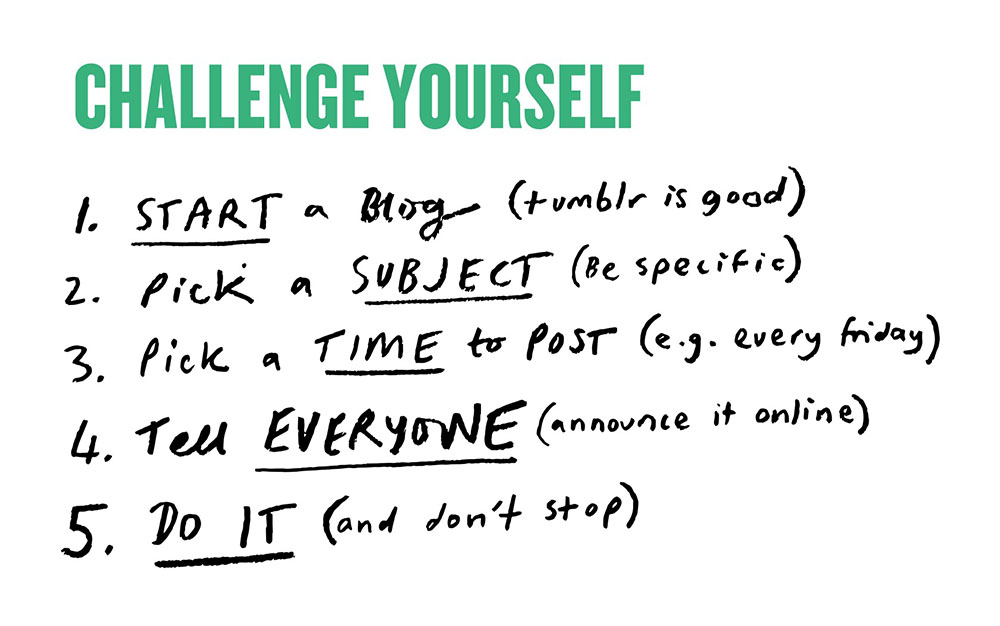 CHALLENGE YOURSELF
1. START a Blog (tumblr is good)
2. Pick a SUBJECT (Be specific)
3. Pick a TIME to POST (e.g. every friday)
4. Tell EVERYONE (announce it online)
5. DO IT (and don't stop)